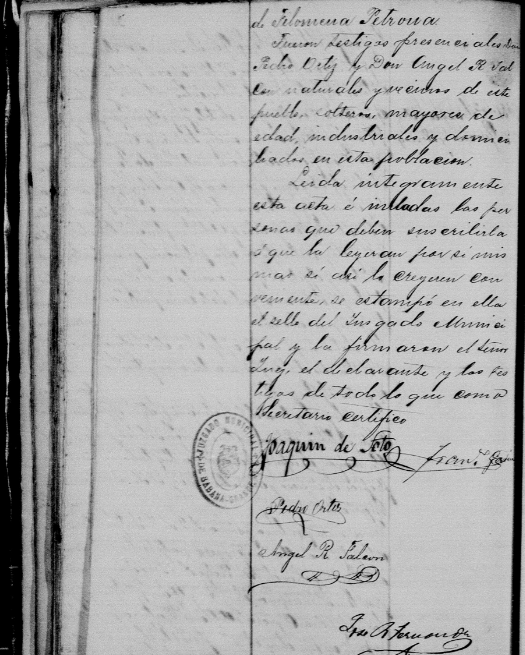 de Filomena Petrona.
Fueron testigos presenciales Don
Pedro Ortiz y Don Angel R. Fal
con naturales y vecinos de este
pueblo, solteros, mayores de
edad, industriales y domici
liados en esta poblacion.
Leida integramente
esta acta é invitadas las per
sonas que deben suscribirla
á que la leyeran por si mis
mas si asi lo creyeren con
veniente, se estampó en ella
el sello del Juzgado Munici
pal y la firmaron el Señor
Juez, el declarante y los tes
tigos de todo lo que como
Secretario certifico
Joaquin de Soto
Pedro Ortiz
Angel R. Falcon
Jose A Fernandez
JUZGADO MUNICIPAL